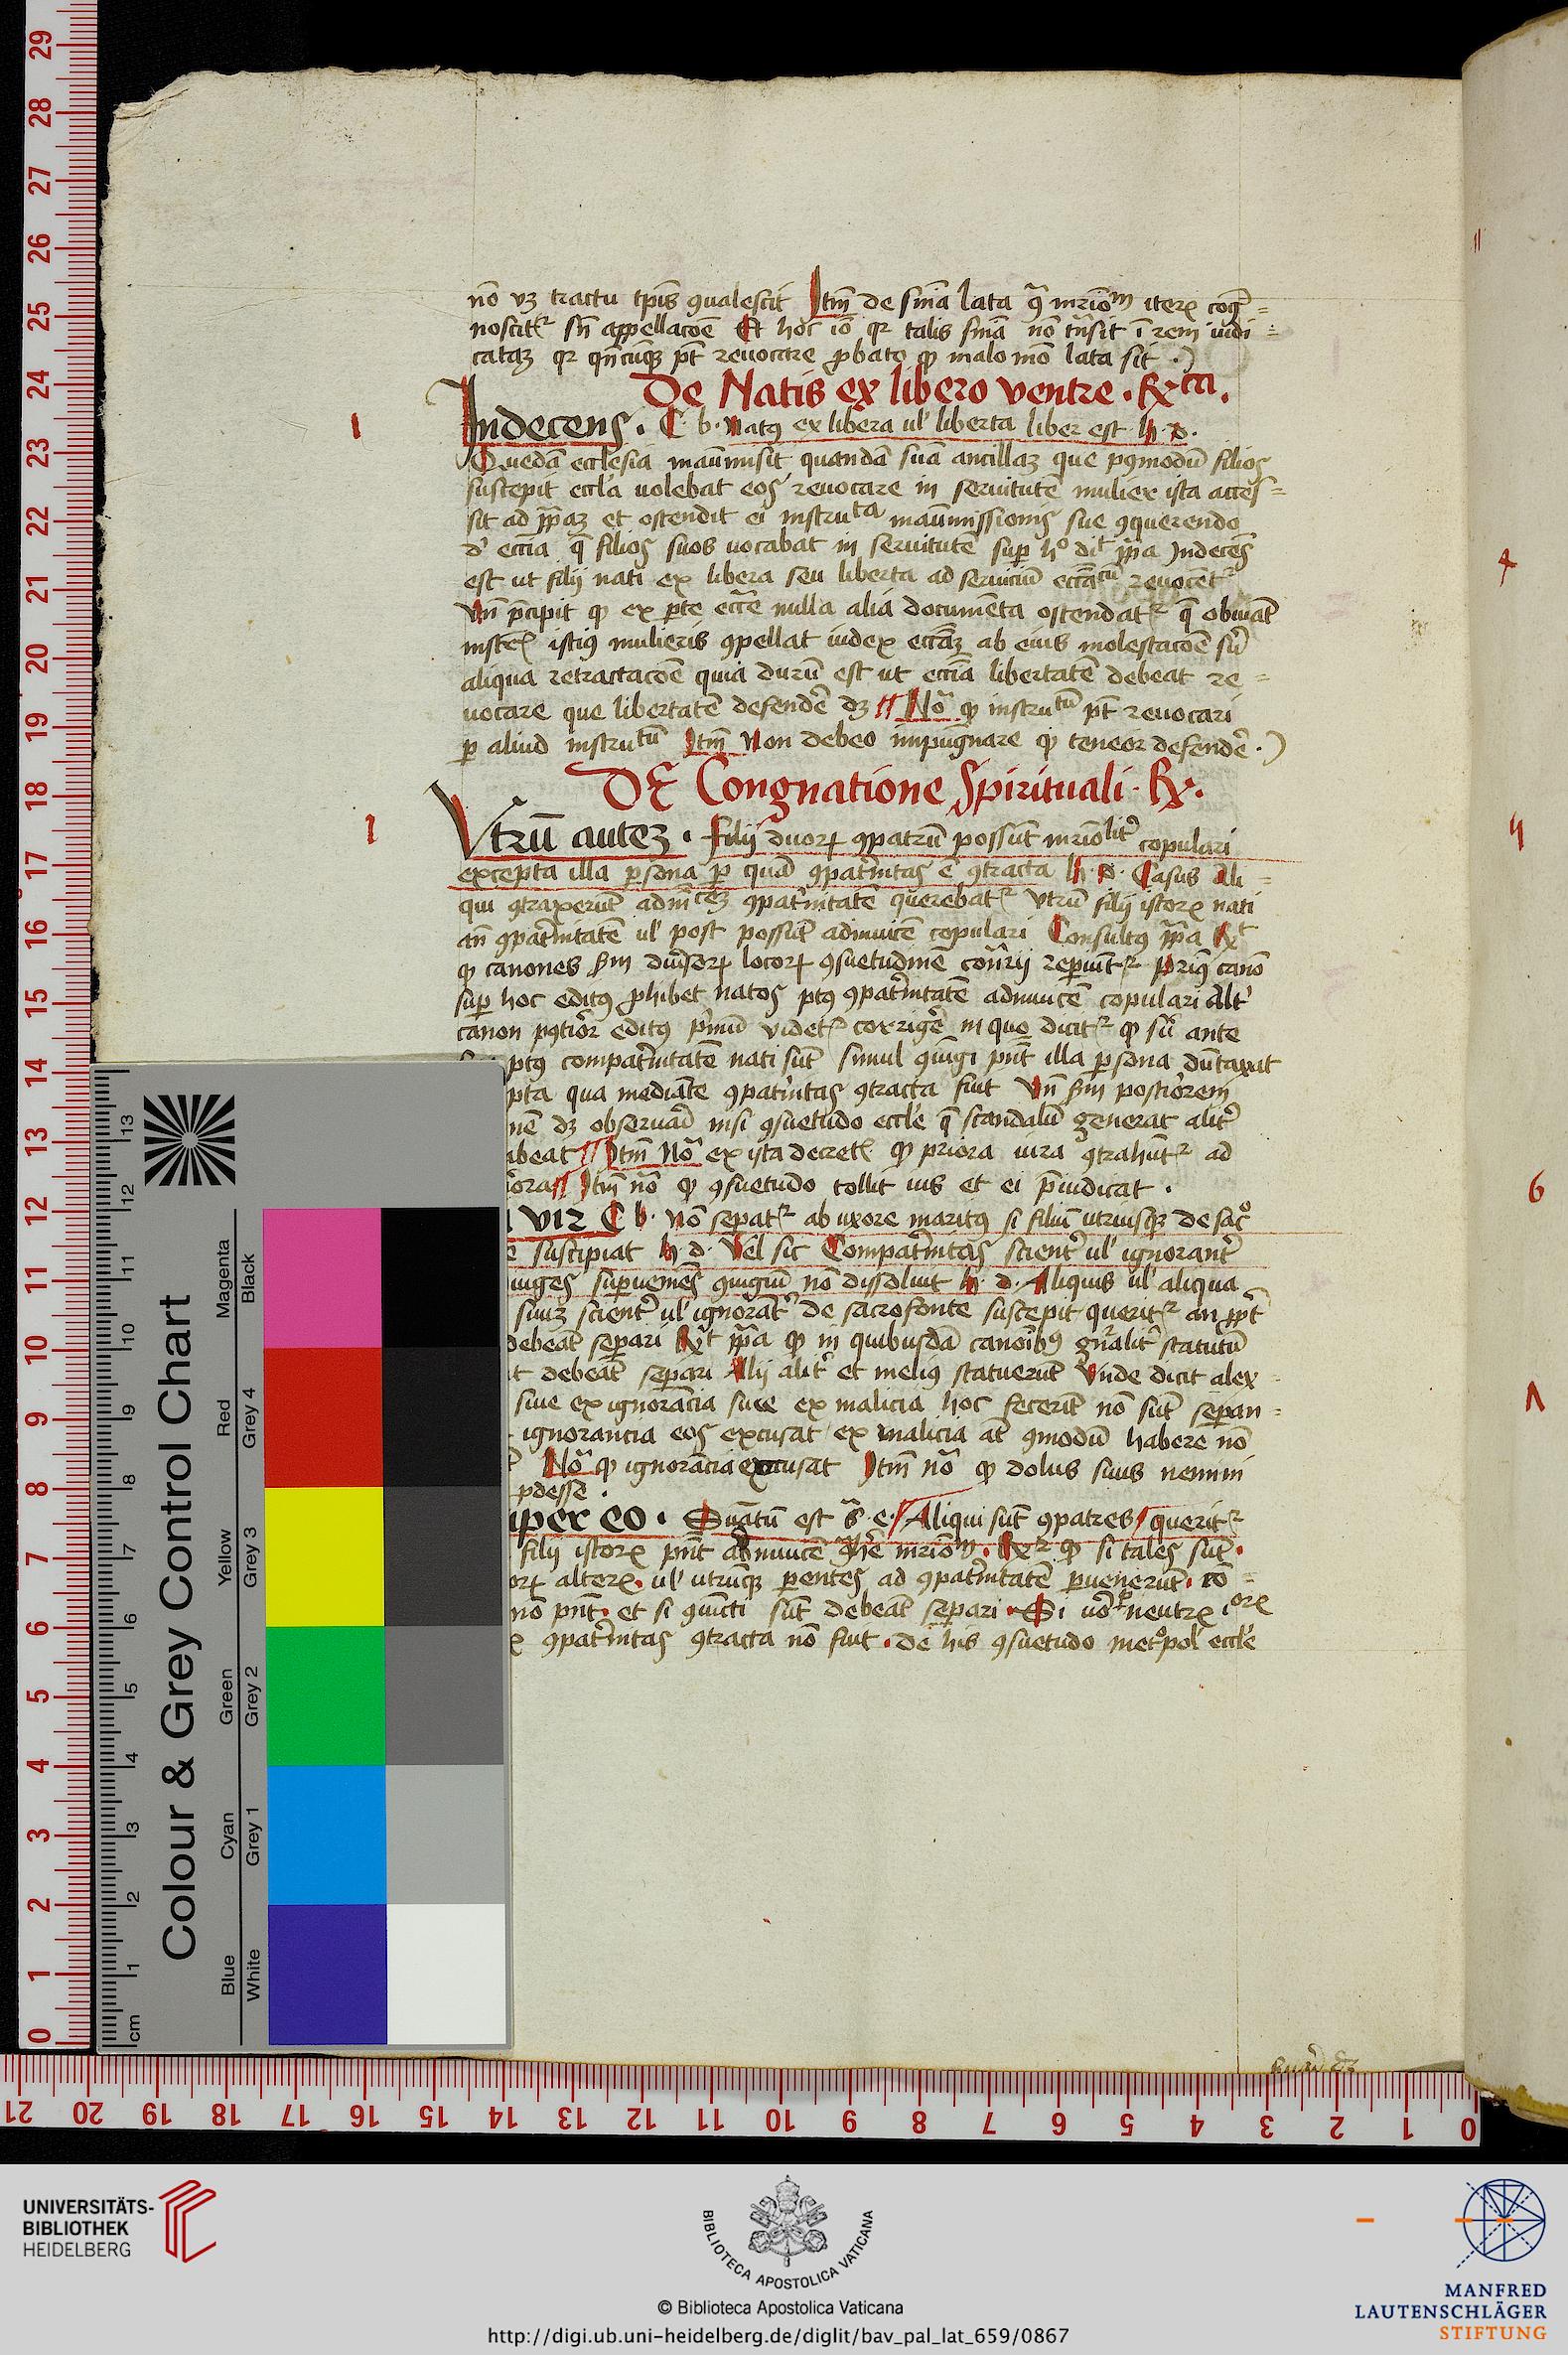 nō vꝫ tractu tp̄is ꝯualescit Itm̄ de sn̄ia lata ꝯͣ mr̄ioᵐ iteꝝ cog=
noscitᷣ sn̄ appellacōe Et hoc iō qꝛ talis sn̄ia nō tn̄sit ī rem iudi=
cataꝫ qꝛ qn̄cūqꝫ pt̄ reuocare ꝓbato ꝙ malo mō lata sit
De Natis ex libero ventre . Rᶜᵃ.
Indecens . C b. Natꝰ ex libera ul' liberta liber est h. d.
Quedā ecclesia manūmisit quandā suā ancillaꝫ que pꝰmodū filios
suscepit eccl'a uolebat eos reuocare in seruitutē mulier ista acces=
sit ad pp̄aꝫ et ostendit ei instruᵗᵃ manūmissionis sue ꝯquerendo
d' eccīa q̄ filios suos uocabat in seruitutē suꝑ hº diᵗ pp̄a Indecēs
est ut filij nati ex libera seu liberta ad seruiciū reuocētᷣ
vn̄ p̄cipit ꝙ ex ꝑte ecc̄e nulla alia documēta ostendatᷣ q̄ obuiāt
istiꝰ mulieris ꝯpellat iudex eccāꝫ ab eius molestacōe sū
aliqua retractacōe quia durū est ut eccīa libertatē debeat re=
uocare que libertatē defendē dꝫ // Noᷓ ꝙ instruᵗū pt̄ reuocari
ꝑ aliud instruᵗū Itm̄ Non debeo impugnare ꝙ teneor defendē .
DE Congnatione Spirituali . R.
Vtrū auteꝫ . filij duoꝝ ꝯpatrū possūt mr̄ioˡⁱᵗ' copulari
excepta illa ꝑsona ꝑ quā ꝯpat'nitas ē ꝯtracta h. d. Casus Ali=
qui ꝯtraxerūt ꝯpat'nitatē querebatᷣ Vtrū filij istoꝝ nati
an̄ ꝯpat'nitatē ul' post possūt adinuicē copulari Consultꝰ pp̄a Rᵗ
ꝙ canones sm̄ diu'soꝝ locoꝝ ꝯsuetudinē cont'rij reperiūtᷣ priꝰ canō
suꝑ hoc editꝰ ꝓhibet natos ptꝰ ꝯpat'nitatē adinuicē copulari Alt'
canon pꝰtiōr editꝰ p'mū videtᷣ corrigē in quo dicitᷣ ꝙ sū ante
ptꝰ compat'nitatē nati sūt simul ꝯiūgi pn̄t illa ꝑsona dūtaxat
pta qua mediāte ꝯpat'nitas ꝯtracta fiut Vn̄ sm̄ postiōrem
nē dꝫ obseruad nisi ꝯsuetudo eccl'e q̄ scandalū generat alit'
abeat // Itm̄ Noᷓ ex ista decretꝭ ꝙ priora iura ꝯtrahūtᷣ ad
iora // Itm̄ noᷓ ꝙ ꝯsuetudo tollit ius et ei p̄iudicat .
vir C b. Nō sepatᷣ ab uxore maritꝰ si filiū utriusqꝫ de sac̊
e suscipiat h. d. Vel sic Compat'nitas scient' ul' ignorant'
iuges suꝑueniēs ꝯiugiū nō dissoluit h. d. Aliquis ul' aliqua
suuꝫ scient' ul' ignorāt' de sacrofonte suscepit queritᷣ an pp̄t
debeāt seꝑari Rᵗ pp̄a ꝙ in quibusdā canōibꝰ gn̄alit' statutū
it debeāt seꝑari Alij alit' et meliꝰ statuerūt Vnde dicit alex=
siue ex ignorancia siue ex malicia hoc fecerīt nō sūt seꝑan=
ignorancia eos excusat ex malicia at̄ ꝯmodū habere nō
Noᷓ ꝙ ignorancia excusat Itm̄ noᷓ ꝙ dolus suus nemini
ꝓdesse .
iper eo . Quātū est s. e. / Aliqui sūt ꝯpatres / queritᷣ
filij istoꝝ pn̄t adinuicē ꝯt̄he mr̄ioᵐ . Rᷣ ꝙ si tales sūt .
oꝝ alteꝝ . ul' utrūqꝫ ꝑentes ad ꝯpat'nitatē ꝑuenerūt . iō=
nō pn̄t . et si ꝯiūcti sūt debeāt seꝑari . Si uō neutꝝ
ꝯpat'nitas ꝯtracta nō fiut . de his ꝯsuetudo met̊pol' eccl'e
1
1
4
6
Colour & Grey Control Chart
Magenta Black
Red Grey 4
Yellow Grey 3
Green Grey 2
Cyan Grey 1
Blue White
cm 1 2 3 4 5 6 7 8 9 10 11 12 13
29 28 27 26 25 24 23 22 21 20 19 18 17 16 15 14 13 12 11 10 9 8 7 6 5 4 3 2 1 0
21 20 19 18 17 16 15 14 13 12 11 10 9 8 7 6 5 4 3 2 1 0
UNIVERSITÄTS-
BIBLIOTHEK
HEIDELBERG
BIBLIOTECA APOSTOLICA VATICANA
© Biblioteca Apostolica Vaticana
http://digi.ub.uni-heidelberg.de/diglit/bav_pal_lat_659/0867
MANFRED
LAUTENSCHLÄGER
STIFTUNG